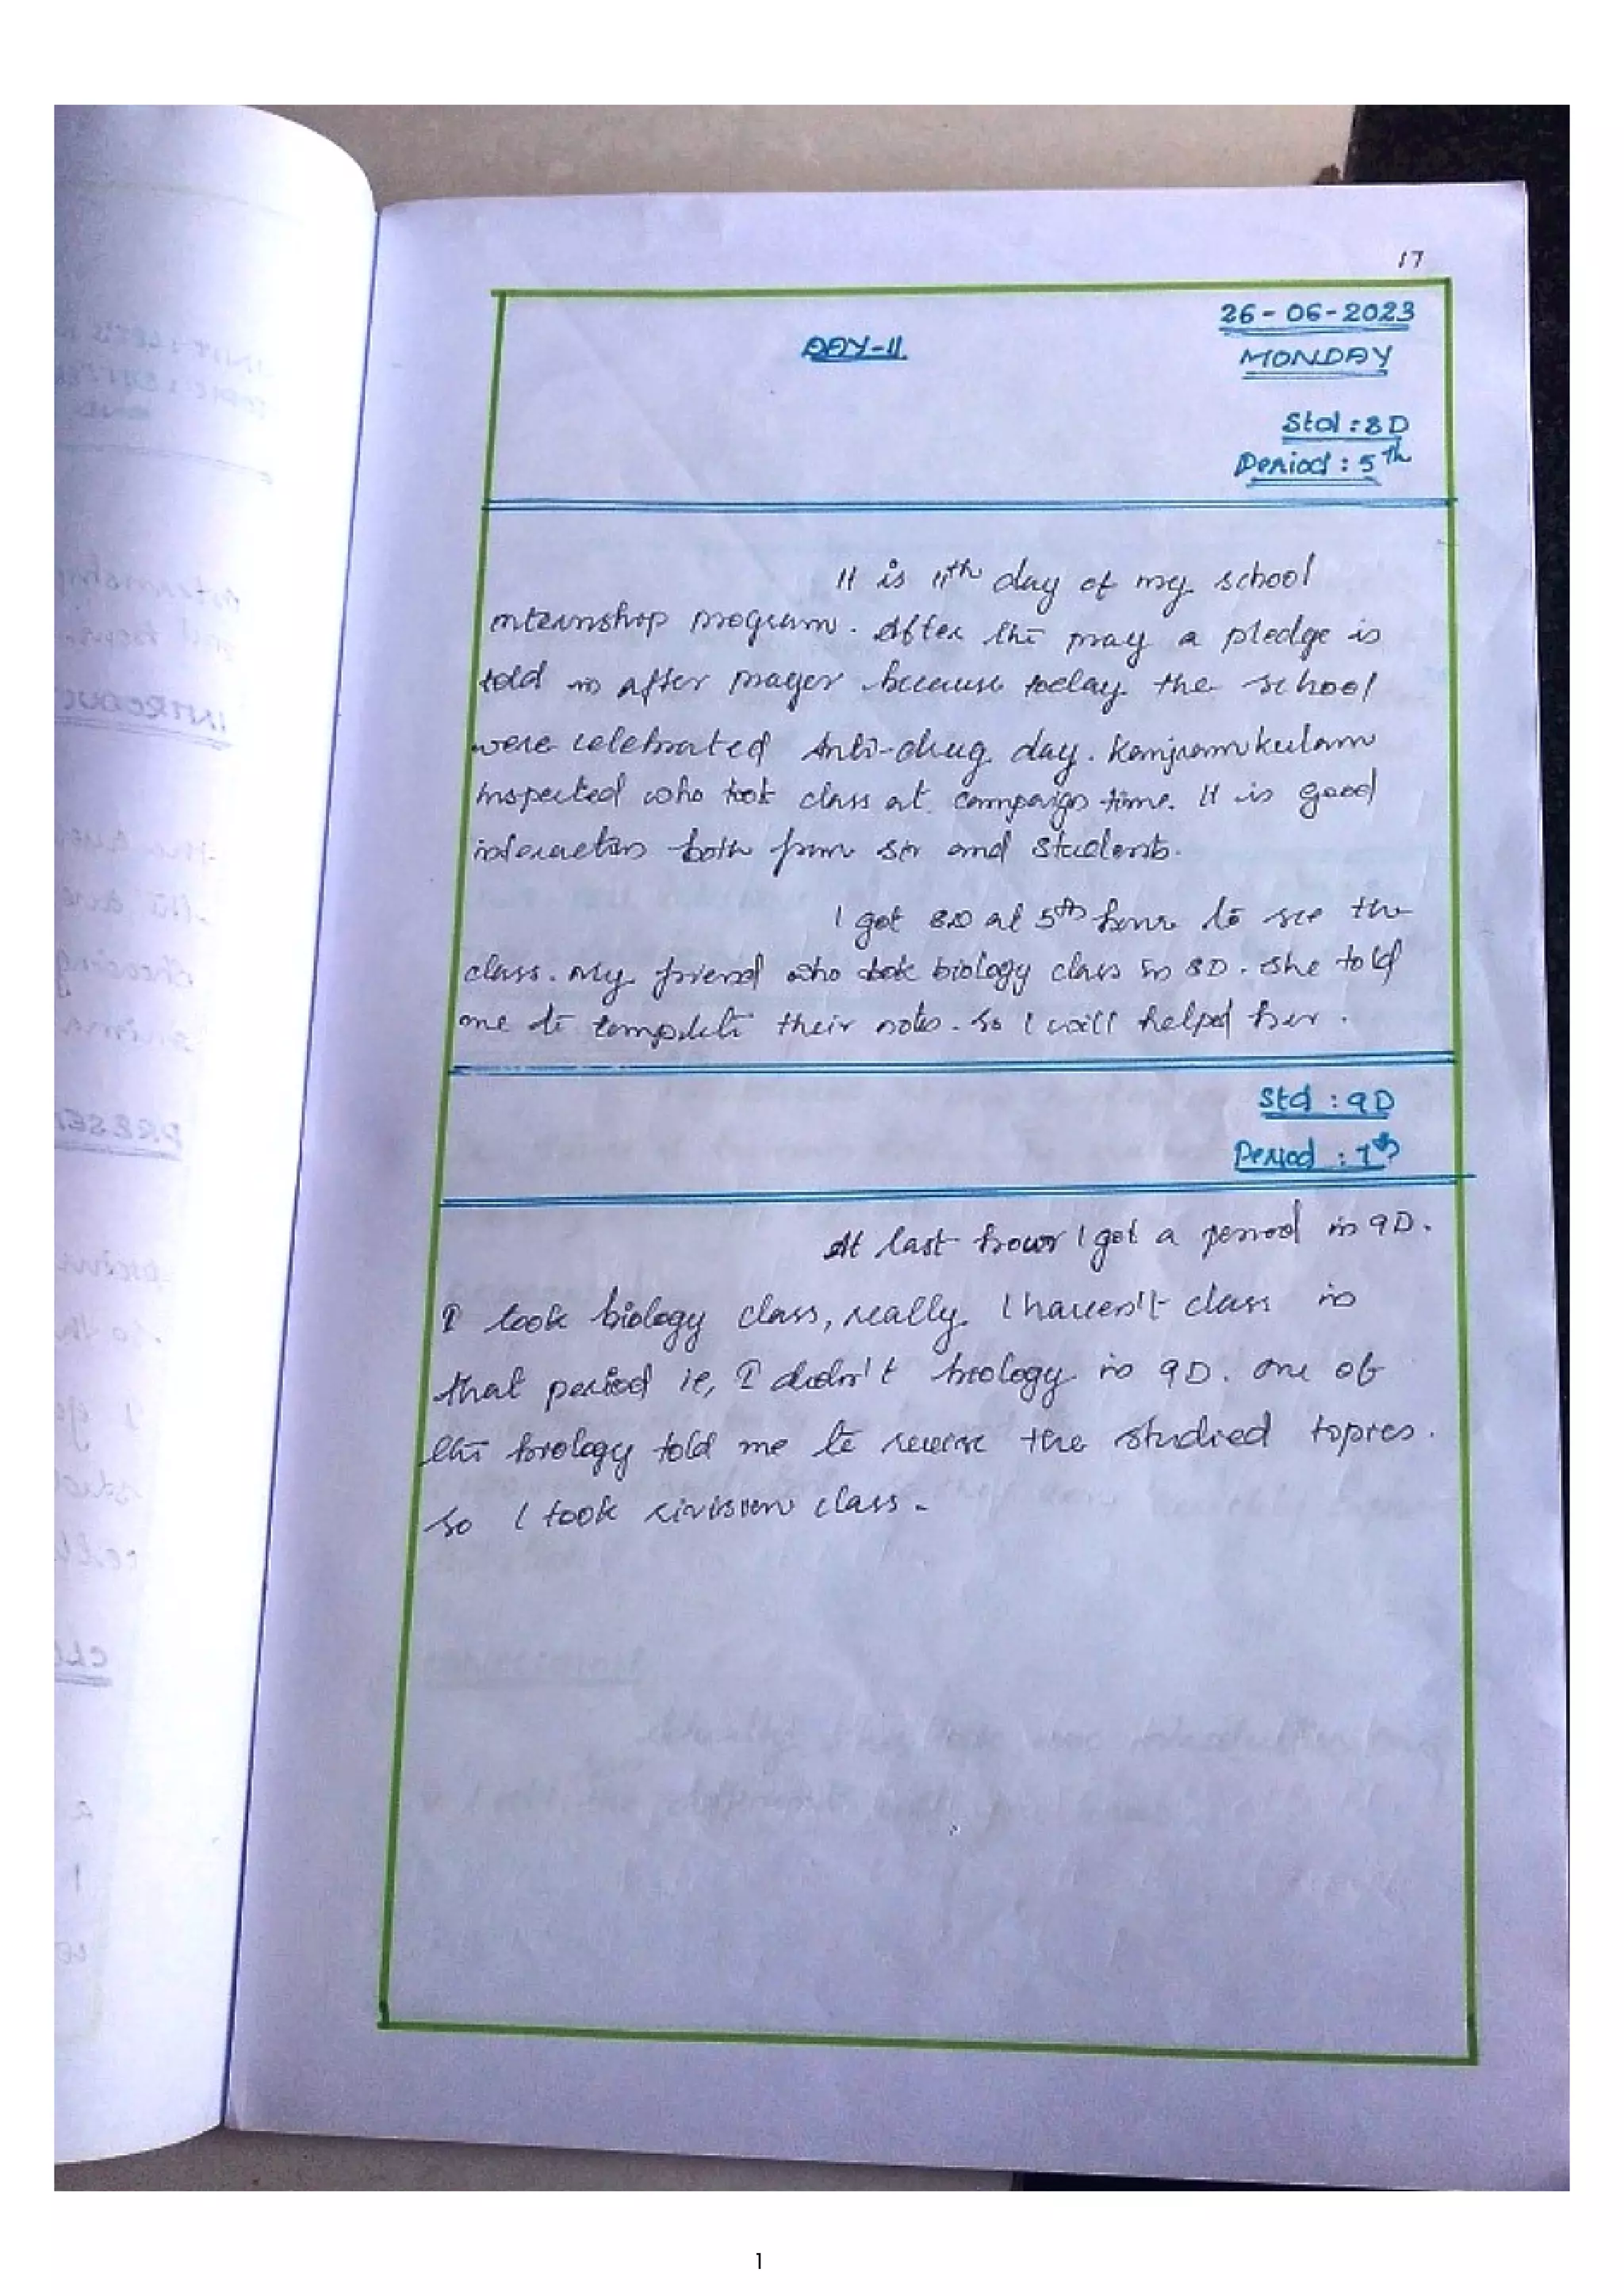 17
26-06-2023
DAY-11
MONDAY
Std : 8D
Period : 5th
It is 11th day of my school
internship program. After the pray a pledge is
told in after prayer because today the school
were celebrated Anti-drug day. Kanjiramkulam
inspected who took class at campaign time. It is good
interaction both from sir and students.
I got 8D at 5th hour to see the
class. My friend who took biology class in 8D. She told
me to complete their notes. So I will helped her.
Std : 9D
Period : 7th
At last hour I got a period in 9D.
I took biology class, really. I haven't class in
that period ie, I didn't biology in 9D. One of
the biology told me to revise the studied topics.
So I took rivision class.
1